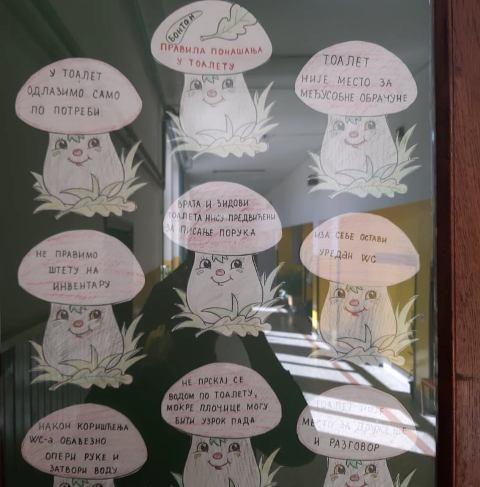 БОНТОН
ПРАВИЛА ПОНАШАЊА
У ТОАЛЕТУ
У ТОАЛЕТ
ОДЛАЗИМО САМО
ПО ПОТРЕБИ
ТОАЛЕТ
НИЈЕ МЕСТО ЗА
МЕЂУСОБНЕ ОБРАЧУНЕ
ВРАТА И ЗИДОВИ
ТОАЛЕТА НИСУ ПРЕДВИЂЕНИ
ЗА ПИСАЊЕ ПОРУКА
НЕ ПРАВИМО
ШТЕТУ НА
ИНВЕНТАРУ
ИЗА СЕБЕ ОСТАВИ
УРЕДАН WC
НЕ ПРСКАЈ СЕ
ВОДОМ ПО ТОАЛЕТУ,
МОКРЕ ПЛОЧИЦЕ МОГУ
БИТИ УЗРОК ПАДА
НАКОН КОРИШЋЕЊА
WC-а ОБАВЕЗНО
ОПЕРИ РУКЕ И
ЗАТВОРИ ВОДУ
ТОАЛЕТ НИЈЕ
МЕСТО ЗА ДРУЖЕЊЕ
И РАЗГОВОР